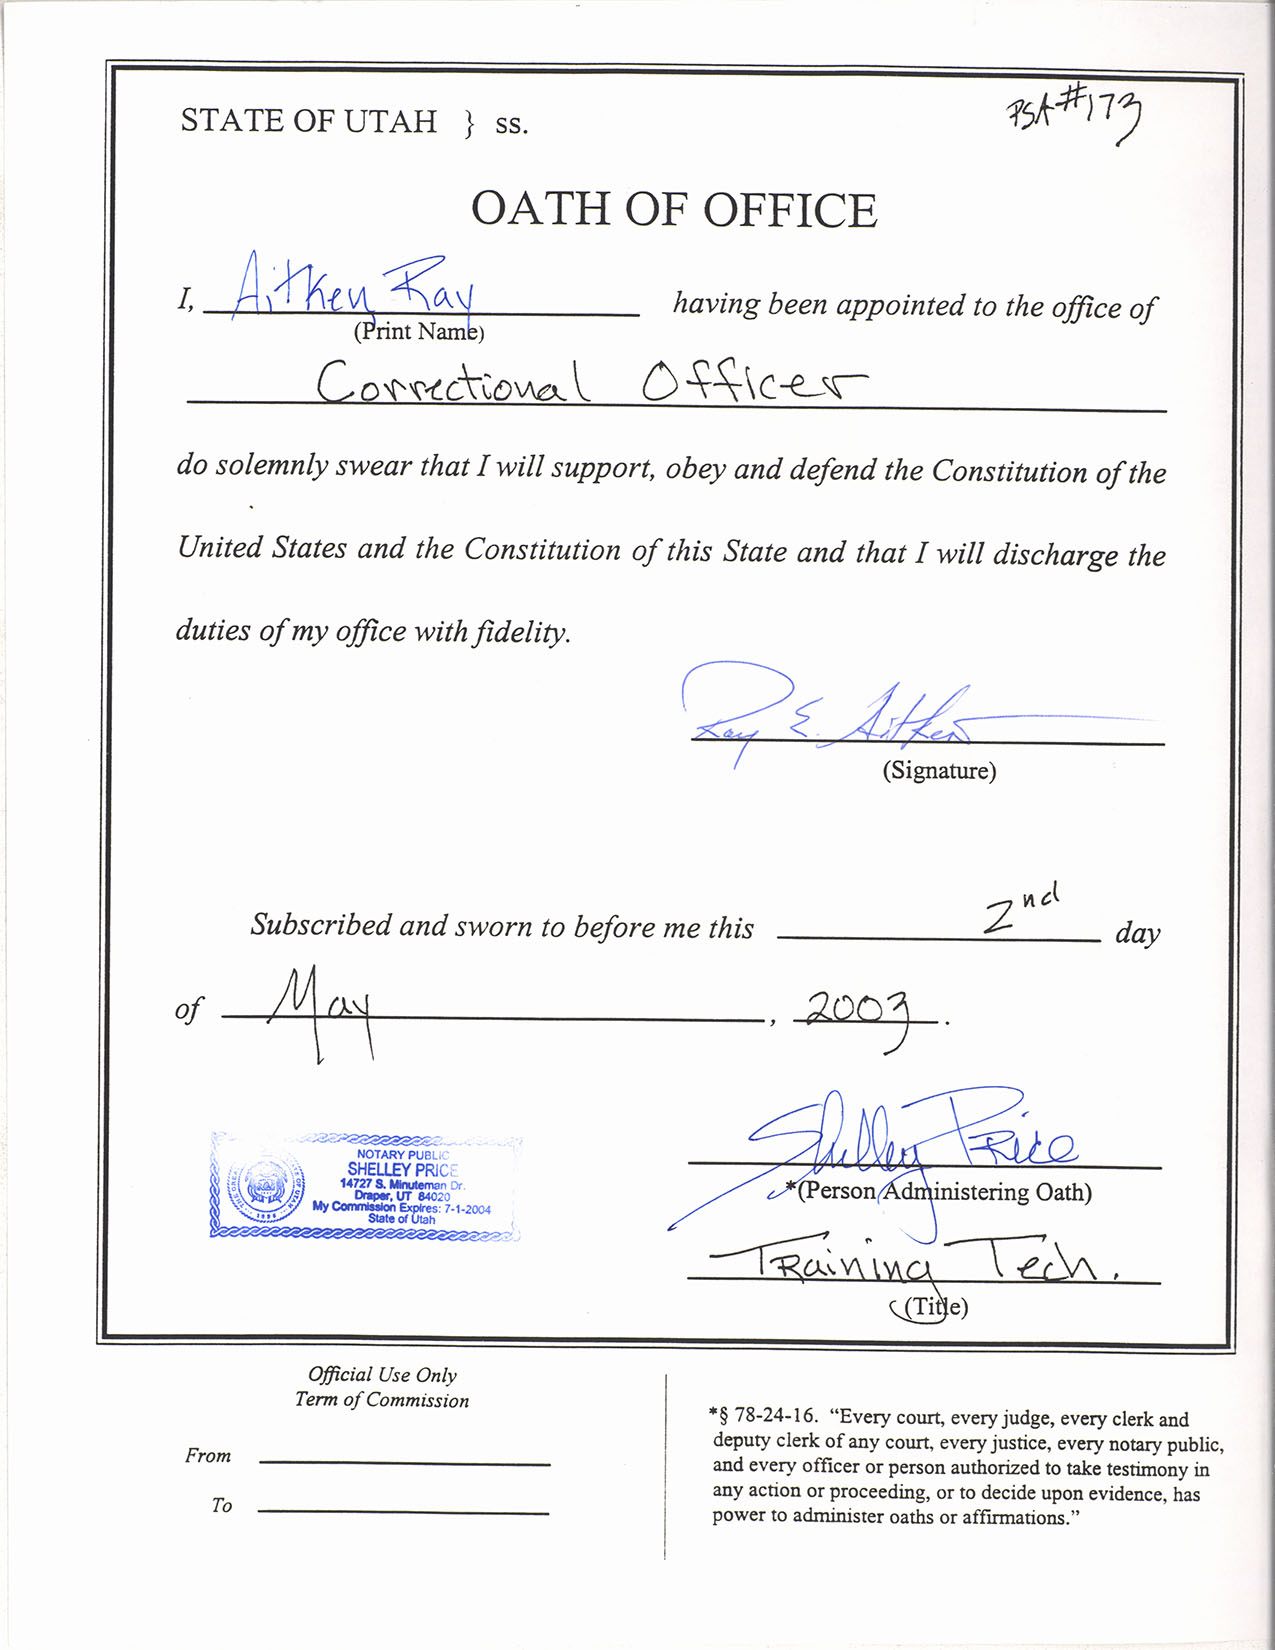 STATE OF UTAH } ss.
PSA#173
OATH OF OFFICE
I, Aitken Ray having been appointed to the office of
(Print Name)
Correctional Officer
do solemnly swear that I will support, obey and defend the Constitution of the
United States and the Constitution of this State and that I will discharge the
duties of my office with fidelity.
Ray E. Aitken
(Signature)
Subscribed and sworn to before me this 2nd day
of May, 2003.
Shelley Price
*(Person Administering Oath)
NOTARY PUBLIC
SHELLEY PRICE
14727 S. Minuteman Dr.
Draper, UT 84020
My Commission Expires: 7-1-2004
State of Utah
Training Tech.
(Title)
Official Use Only
Term of Commission
From
To
*§ 78-24-16. “Every court, every judge, every clerk and
deputy clerk of any court, every justice, every notary public,
and every officer or person authorized to take testimony in
any action or proceeding, or to decide upon evidence, has
power to administer oaths or affirmations.”